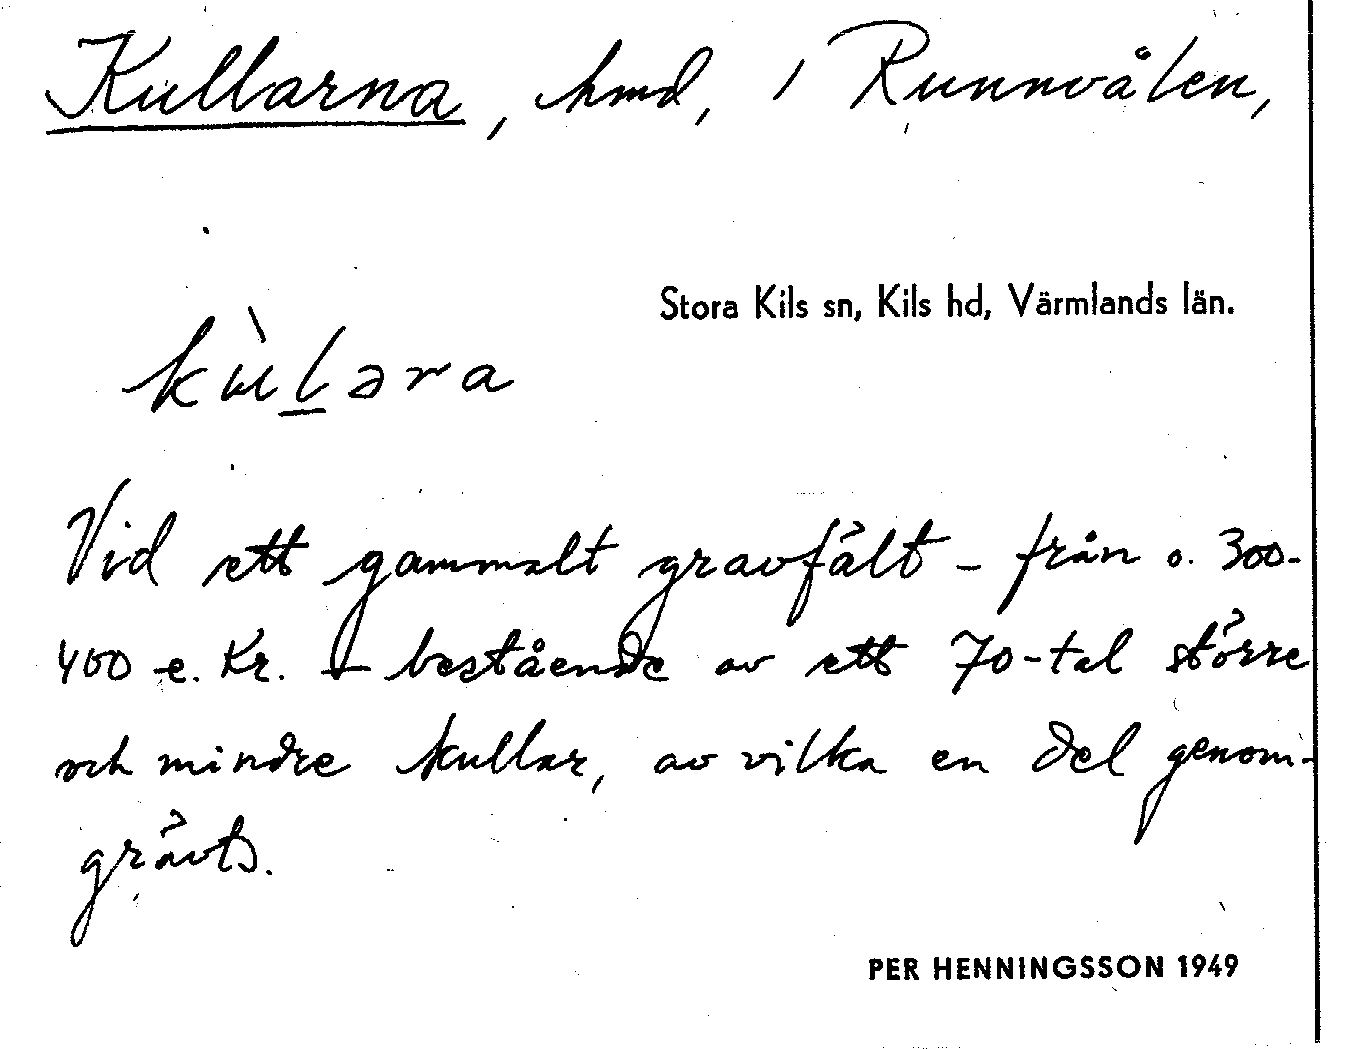 Kullarna, hmd, i Runnvålen,
Stora Kils sn, Kils hd, Värmlands län.
kùl̲əra
Vid ett gammalt gravfält - från o. 300-
400 e. Kr. - bestående av ett 70-tal större
och mindre kullar, av vilka en del genom-
grävts.
PER HENNINGSSON 1949